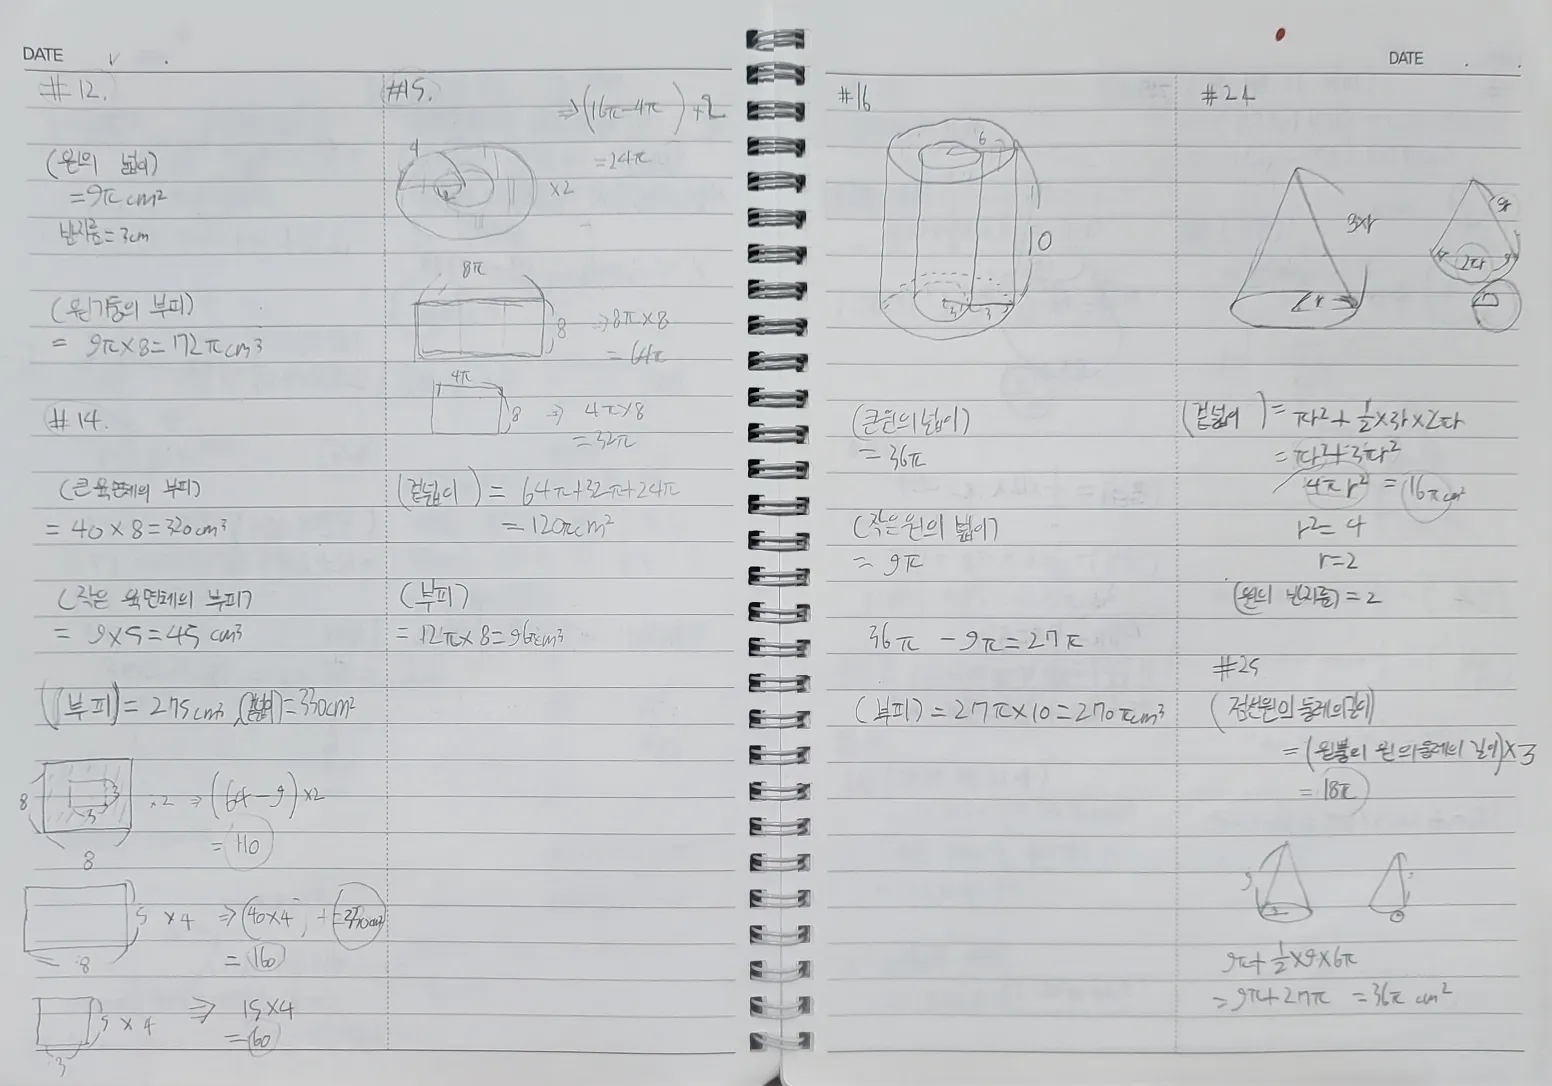 DATE
#12.
(원의 넓이)
=9π cm²
반지름=3cm
(원기둥의 부피)
= 9π×8=172πcm³
#14.
(큰 육면체의 부피)
= 40×8=320cm³
(작은 육면체의 부피)
= 9×5=45 cm³
(부피)=275cm³, (겉넓이)=330cm²
8
3
3
8
×2 ⇒ (64-9)×2
= 110
5 ×4 ⇒ 40×4
8
= 160
5 ×4 ⇒ 15×4
= 60
3
#15.
⇒(16π-4π)
=24π
4
×2
8π
8
⇒8π×8
= 64π
4π
8
⇒ 4π×8
=32π
(겉넓이) = 64π+32π+24π
= 120πcm²
(부피)
= 12π×8=96πcm³
DATE
#16
6
10
3
3
(큰원의 넓이)
= 36π
(작은원의 넓이)
= 9π
36π -9π=27π
(부피)=27π×10=270πcm³
#24
3r
r
2πr
(겉넓이)= πr²+½×3r×2πr
= πr²+3πr²
4πr² = 16πcm²
r²=4
r=2
(원의 반지름)=2
#25
(점선원의 둘레의 길이)
=(원뿔의 원의 둘레의 길이)×3
= 18π
9π+½×9×6π
=9π+27π =36π cm²